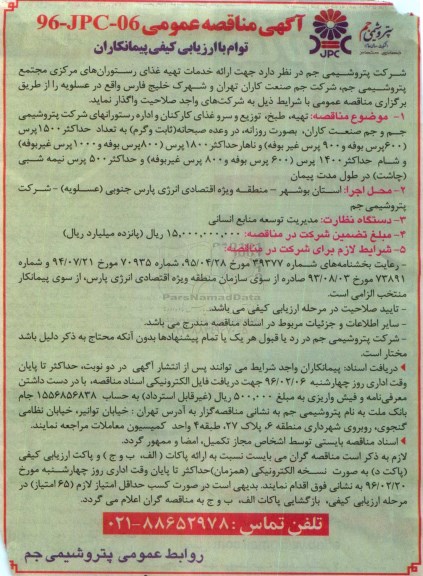 پتروشیمی جم
JPC
آگهی مناقصه عمومی 96-JPC-06
توام با ارزیابی کیفی پیمانکاران
شرکت پتروشیمی جم در نظر دارد جهت ارائه خدمات تهیه غذای رستوران‌های مرکزی مجتمع
پتروشیمی جم، شرکت جم صنعت کاران تهران و شهرک خلیج فارس واقع در عسلویه را از طریق
برگزاری مناقصه عمومی با شرایط ذیل به شرکت‌های واجد صلاحیت واگذار نماید.
۱- موضوع مناقصه: تهیه، طبخ، توزیع و سرو غذای کارکنان و اداره رستورانهای شرکت پتروشیمی
جم و جم صنعت کاران، بصورت روزانه، در وعده صبحانه(ثابت وگرم) به تعداد حداکثر ۱۵۰۰پرس
(۶۰۰پرس بوفه و ۹۰۰ پرس غیر بوفه) و ناهار حداکثر ۱۸۰۰پرس (۸۰۰پرس بوفه و ۱۰۰۰پرس غیربوفه)
و شام حداکثر ۱۴۰۰ پرس (۶۰۰ پرس بوفه و ۸۰۰ پرس غیربوفه) و حداکثر ۵۰۰ پرس نیمه شبی
(چاشت) در طول مدت پیمان
۲- محل اجرا: استان بوشهر – منطقه ویژه اقتصادی انرژی پارس جنوبی (عسلویه) – شرکت
پتروشیمی جم
۳- دستگاه نظارت: مدیریت توسعه منابع انسانی
۴- مبلغ تضمین شرکت در مناقصه: ۱۵,۰۰۰,۰۰۰,۰۰۰ ریال (پانزده میلیارد ریال)
۵- شرایط لازم برای شرکت در مناقصه:
- رعایت بخشنامه‌های شماره ۴۹۳۷۷ مورخ ۹۵/۰۴/۲۸، شماره ۷۰۹۳۵ مورخ ۹۴/۰۷/۲۱ و شماره
۷۳۸۹۱ مورخ ۹۳/۰۸/۰۳ صادره از سوی سازمان منطقه ویژه اقتصادی انرژی پارس، از سوی پیمانکار
منتخب الزامی است.
- تایید صلاحیت در مرحله ارزیابی کیفی می باشد.
- سایر اطلاعات و جزئیات مربوط در اسناد مناقصه مندرج می باشد.
- شرکت پتروشیمی جم در رد یا قبول هر یک یا تمام پیشنهادها بدون آنکه محتاج به ذکر دلیل باشد
مختار است.
دریافت اسناد: پیمانکاران واجد شرایط می توانند پس از انتشار آگهی در دو نوبت، حداکثر تا پایان
وقت اداری روز چهارشنبه ۹۶/۰۲/۰۶ جهت دریافت فایل الکترونیکی اسناد مناقصه، با در دست داشتن
معرفی‌نامه و فیش واریزی به مبلغ ۵۰۰,۰۰۰ ریال (غیرقابل استرداد) به حساب ۱۵۵۶۸۵۶۸۳۸ جام
بانک ملت به نام پتروشیمی جم به نشانی مناقصه‌گزار به آدرس تهران : خیابان توانیر، خیابان نظامی
گنجوی، روبروی شهرداری منطقه ۶، پلاک ۲۷، طبقه۴ واحد کمیسیون معاملات مراجعه نمایند.
اسناد مناقصه بایستی توسط اشخاص مجاز تکمیل، امضا و ممهور گردد.
لازم به ذکر است مناقصه گران می بایست نسبت به ارائه پاکات ( الف، ب و ج ) و پاکت ارزیابی کیفی
(پاکت د) به صورت نسخه الکترونیکی (همزمان)حداکثر تا پایان وقت اداری روز چهارشنبه مورخ
۹۶/۰۲/۲۰ به نشانی فوق اقدام نمایند. بدیهی است در صورت کسب حداقل امتیاز لازم (۶۵ امتیاز) در
مرحله ارزیابی کیفی، بازگشایی پاکات الف، ب و ج به مناقصه گران اعلام می گردد.
تلفن تماس : ۸۸۶۵۲۹۷۸-۰۲۱
روابط عمومی پتروشیمی جم
ParsNamadData